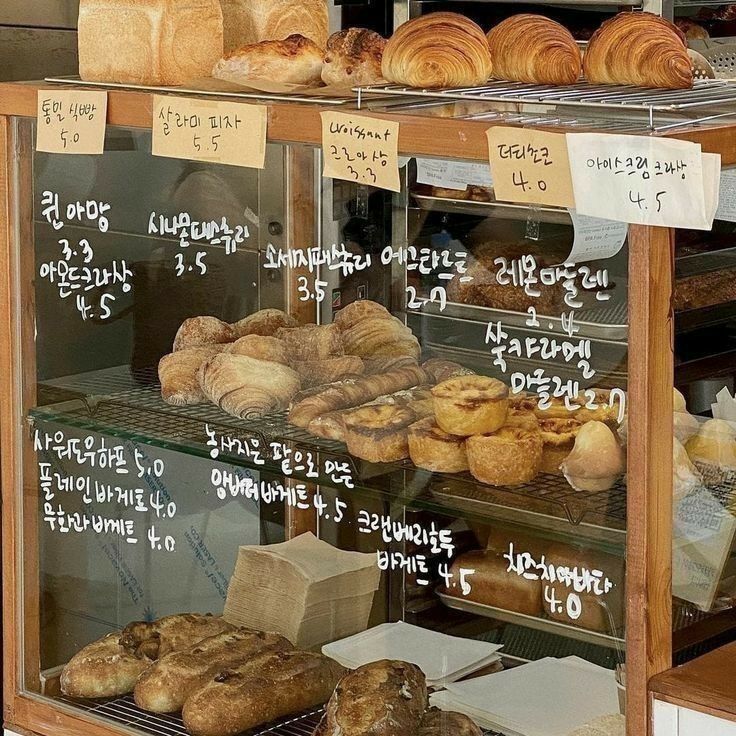 통밀 식빵
5.0
살라미 피자
5.5
Croissant
크로아상
3.3
더티초코
4.0
아이스크림 크라상
4.5
퀸아망
3.3
아몬드크라상
4.5
시나몬패스츄리
3.5
소세지패스츄리
3.5
에그타르트
2.7
레몬마들렌
2.4
쑥캬라멜
마들렌 2.7
사워도우하프 5.0
플레인바게트 4.0
무화과바게트
4.0
농사지은 팥으로 만든
앙버터바게트 4.5
크랜베리호두
바게트 4.5
치즈치아바타
4.0